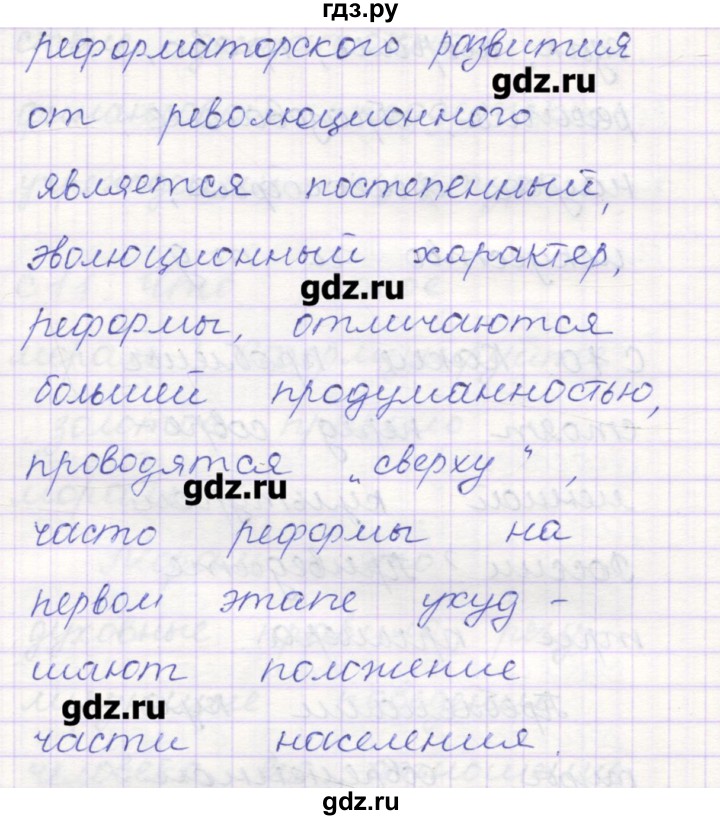 гдз.ру
реформаторского развития
gdz.ru
от революционного
является постепенный,
эволюционный характер,
gdz.ru
реформы, отличаются
большей продуманностью,
проводятся „сверху",
gdz.ru
часто реформы на
первом этапе ухуд-
шают положение
gdz.ru
части населения.
gdz.ru